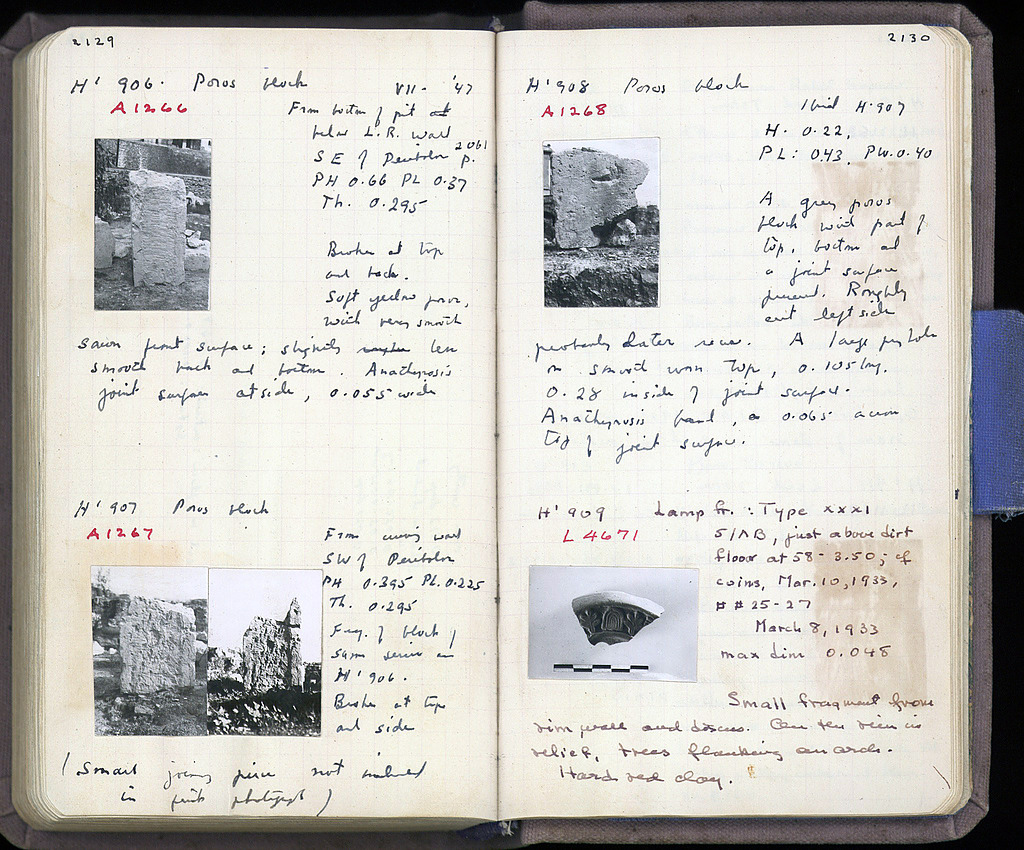 2129
H' 906. Poros block VII- '47
A 1266
From bottom of pit
below L.R. wall
SE of Peribolos p. 2061
PH 0.66 PL 0.37
Th. 0.295
Broken at top
and back.
Soft yellow poros,
with very smooth
sawn front surface; slightly less
smooth back and bottom. Anathyrosis
joint surface at side, 0.055 wide
H' 907 Poros block
A 1267
From curving wall
SW of Peribolos
PH 0.395 PL. 0.225
Th. 0.295
Frag. of block of
same series as
H' 906.
Broken at top
and side
(Small joining piece not included
in first photograph)
2130
H' 908 Poros block
A 1268
Ibid H' 907
H. 0.22,
PL: 0.43, PW. 0.40
A grey poros
block with part of
top, bottom and
a joint surface
preserved. Roughly
cut left side
probably later reuse. A large pry hole
on smooth worn top, 0.105 lng.
0.28 inside of joint surface.
Anathyrosis band, 0.065 across
top of joint surface.
H' 909 Lamp fr. : Type XXXI
L 4671
5/ΛB, just above dirt
floor at 58 - 3.50; cf
coins, Mar. 10, 1933,
# # 25-27
March 8, 1933
max dim 0.048
Small fragment from
rim wall and discus. On the rim in
relief, trees flanking an arch.
Hard red clay.